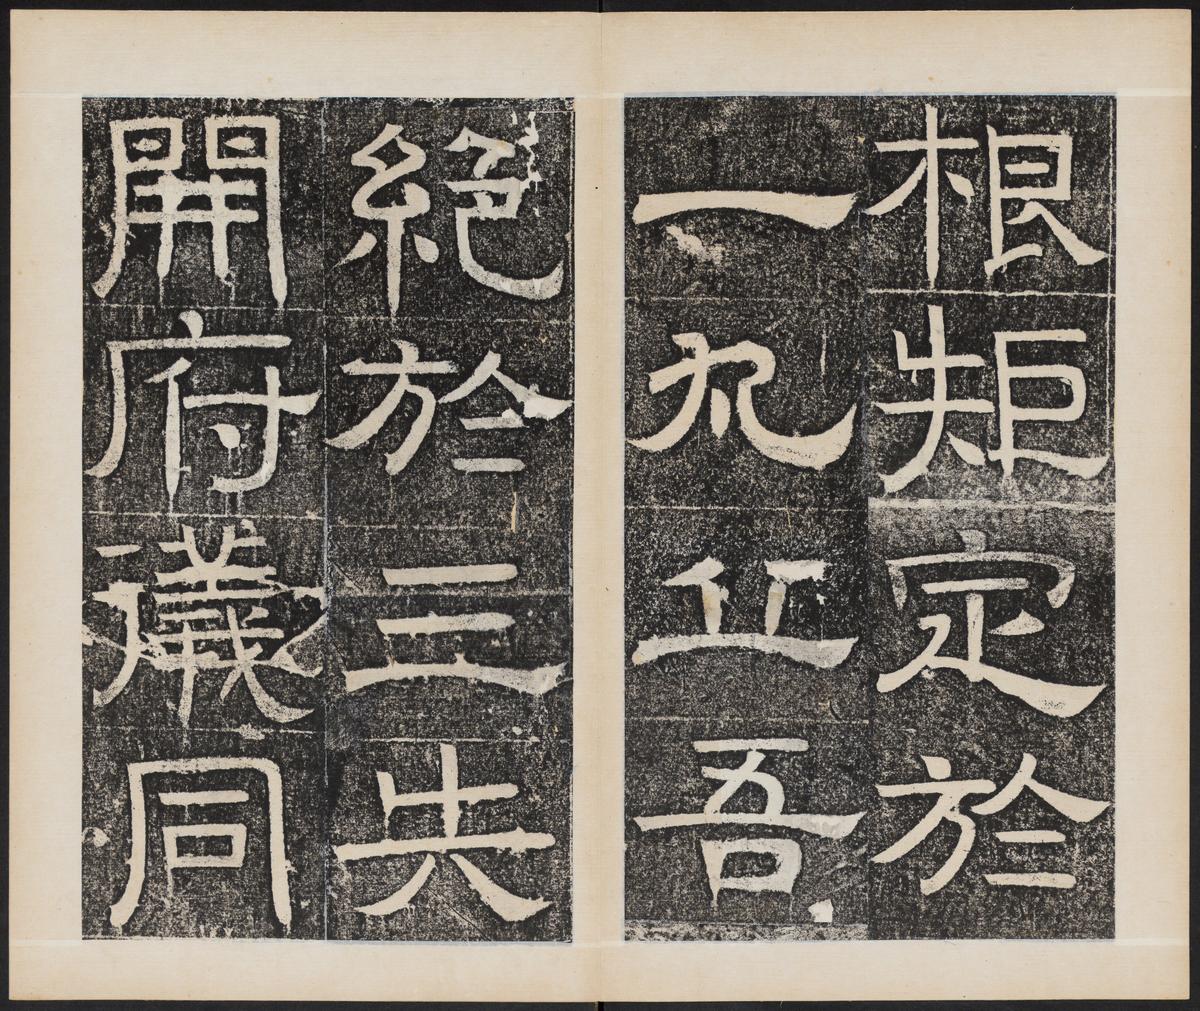 根矩定於
一丸丘吾
絕於三失
開府儀同